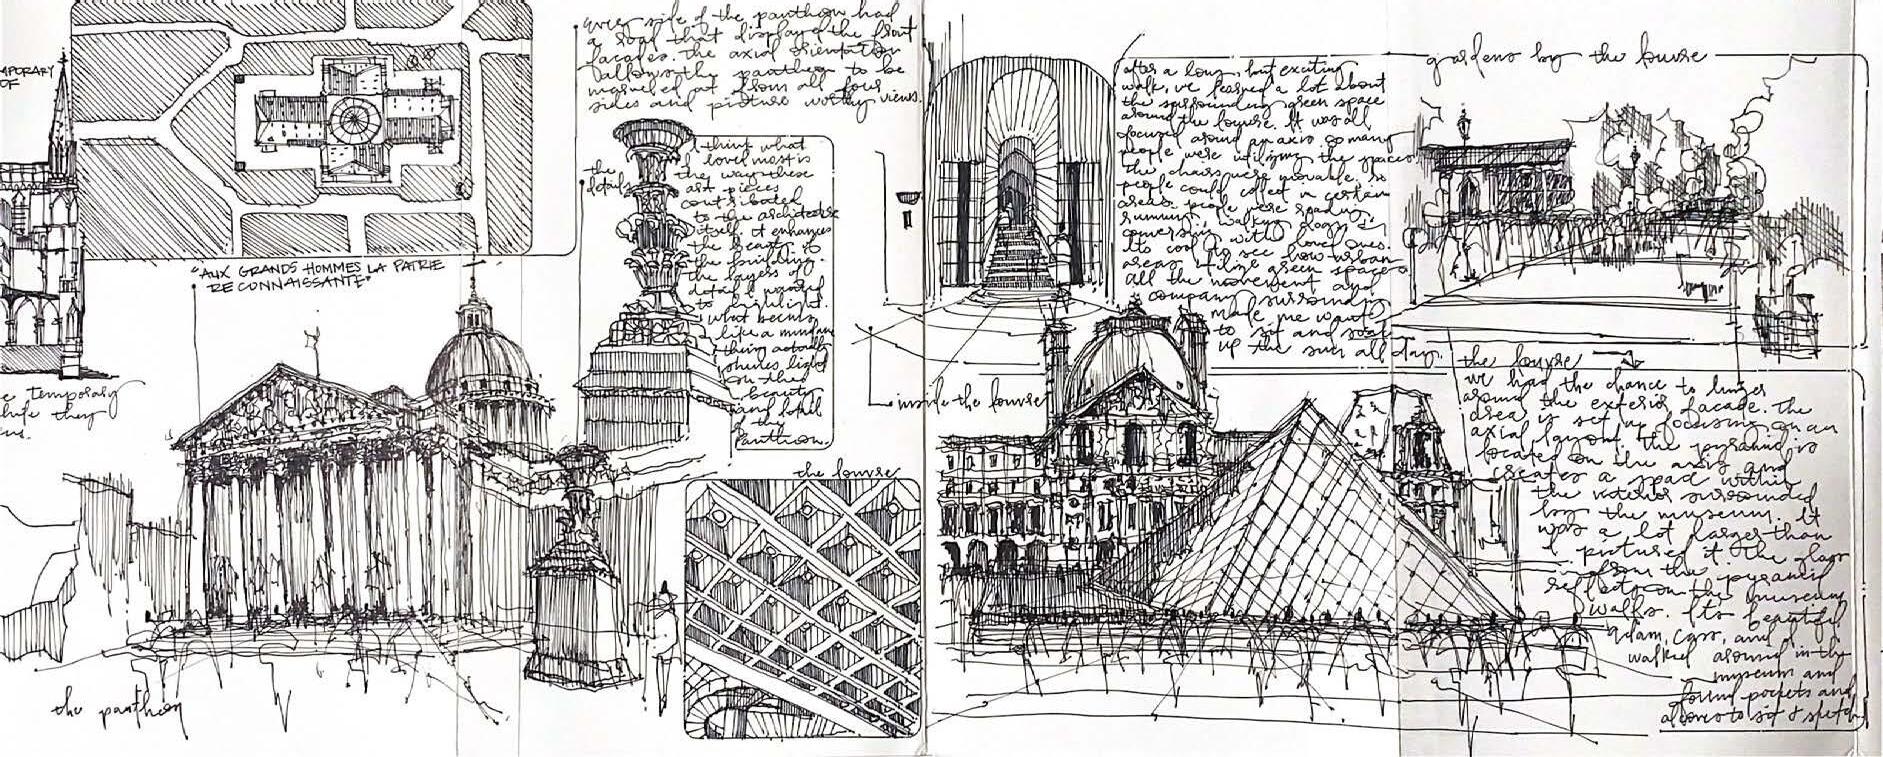 MPORARY
OF
every side of the pantheon had
a road that displayed the front
facades. The axial orientation
allows the pantheon to be
marveled at from all four
sides and picture worthy views.
"AUX GRANDS HOMMES LA PATRIE
RECONNAISSANTE"
e temporary
while they
the pantheon
the
details
I think what
I loved most is
the way these
art pieces
contributed
to the architecture
itself. it enhances
the beauty of
the building.
the layers of
detail wanted
to highlight.
what becomes
like a mundane
thing actually
shines light
on the
beauty
and detail
of the
Pantheon.
the louvre
inside the louvre
after a long, but exciting
walk, we learned a lot about
the surrounding green space
around the louvre. It was all
focused around an axis. So many
people were utilizing the spaces
the chairs were movable. So
people could collect in certain
areas. people were reading,
running, walking dogs,
conversing with loved ones.
Its cool to see how urban
areas utilize green spaces
all the movement and
company surrounding
made me want
to sit and soak
up the sun all day.
gardens by the louvre
the louvre
we had the chance to linger
around the exterior facade. The
area is set up focusing on an
axial layout. the pyramid is
located on the axis and
creates a space within
the exterior surrounded
by the museum. It
was a lot larger than
I pictured it. The glass
from the pyramid
reflects on the museum
walls. Its beautiful
adam, cass, and I
walked around in the
museum and
found pockets and
alcoves to sit & sketch